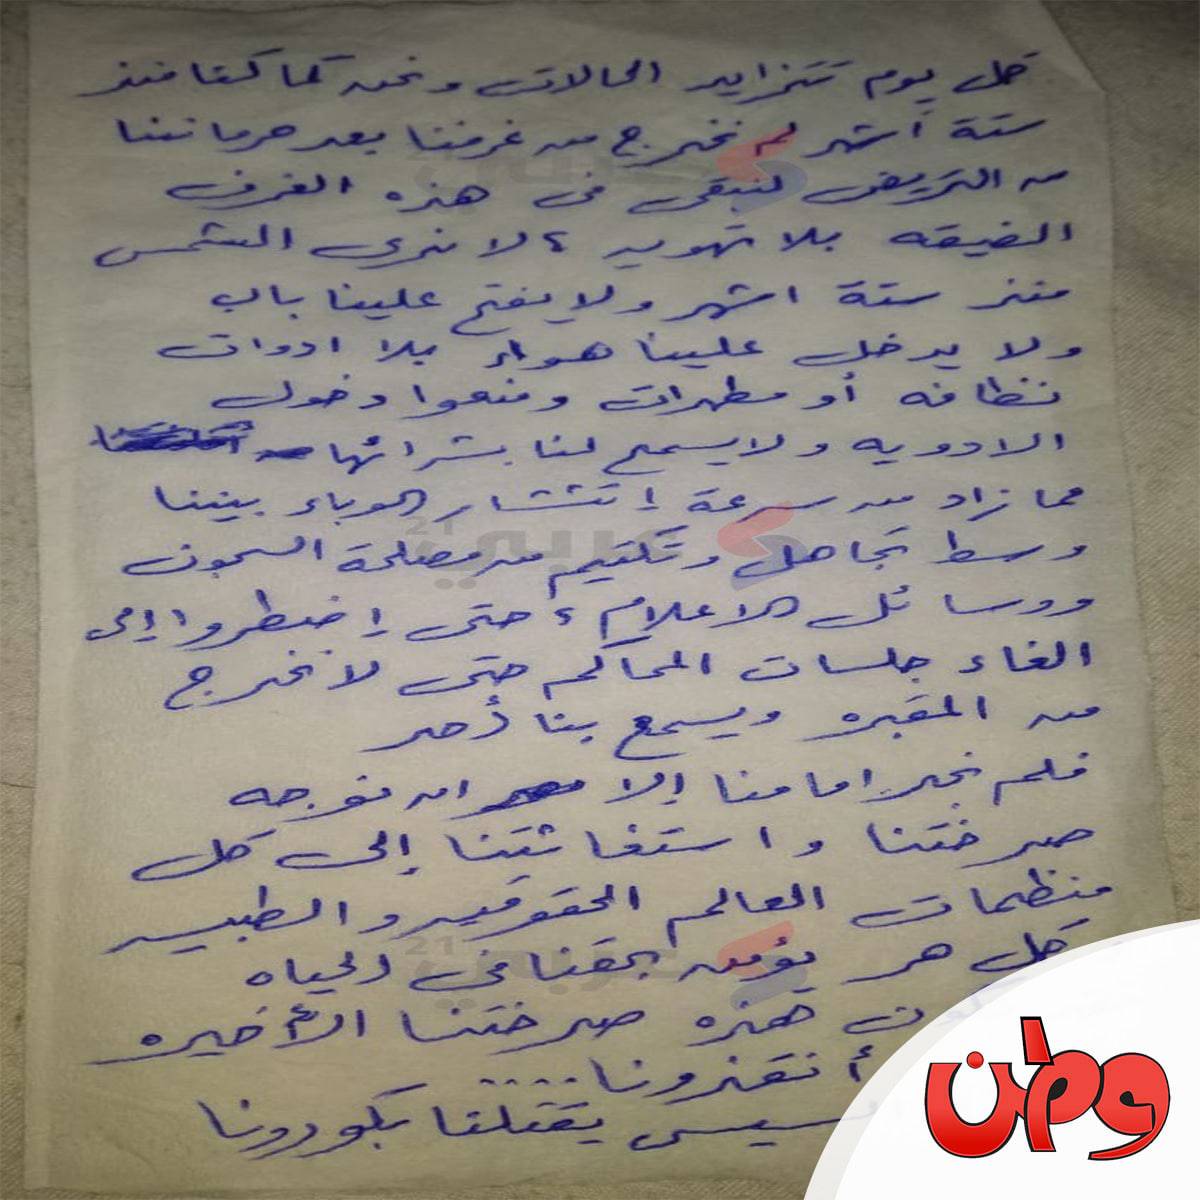 كل يوم تتزايد الحالات ونحن كما كنا منذ
ستة أشهر لم نخرج من غرفنا بعد حرماننا
من التريض لنبقى فى هذه الغرف
الضيقه بلا تهويه ، لا نرى الشمس
منذ ستة اشهر ولا يفتح علينا باب
ولا يدخل علينا هواء بلا ادوات
نظافه أو مطهرات ومنعوا دخول
الادويه ولا يسمح لنا بشرائها
مما زاد من سرعة إنتشار الوباء بيننا
وسط تجاهل وتكتيم من مصلحة السجون
ووسائل الاعلام ، حتى إضطروا إلى
الغاء جلسات المحاكم حتى لا نخرج
من المقبره ويسمع بنا أحد
فلم نجد امامنا إلا ان نوجه
صرختنا واستغاثتنا إلى كل
منظمات العالم الحقوقيه والطبيه
كل حر يؤمن بحقنا فى الحياه
هذه صرختنا الأخيره
أنقذونا ....
السيسى يقتلنا بكورونا
عربي 21
عربي 21
عربي 21
وطن